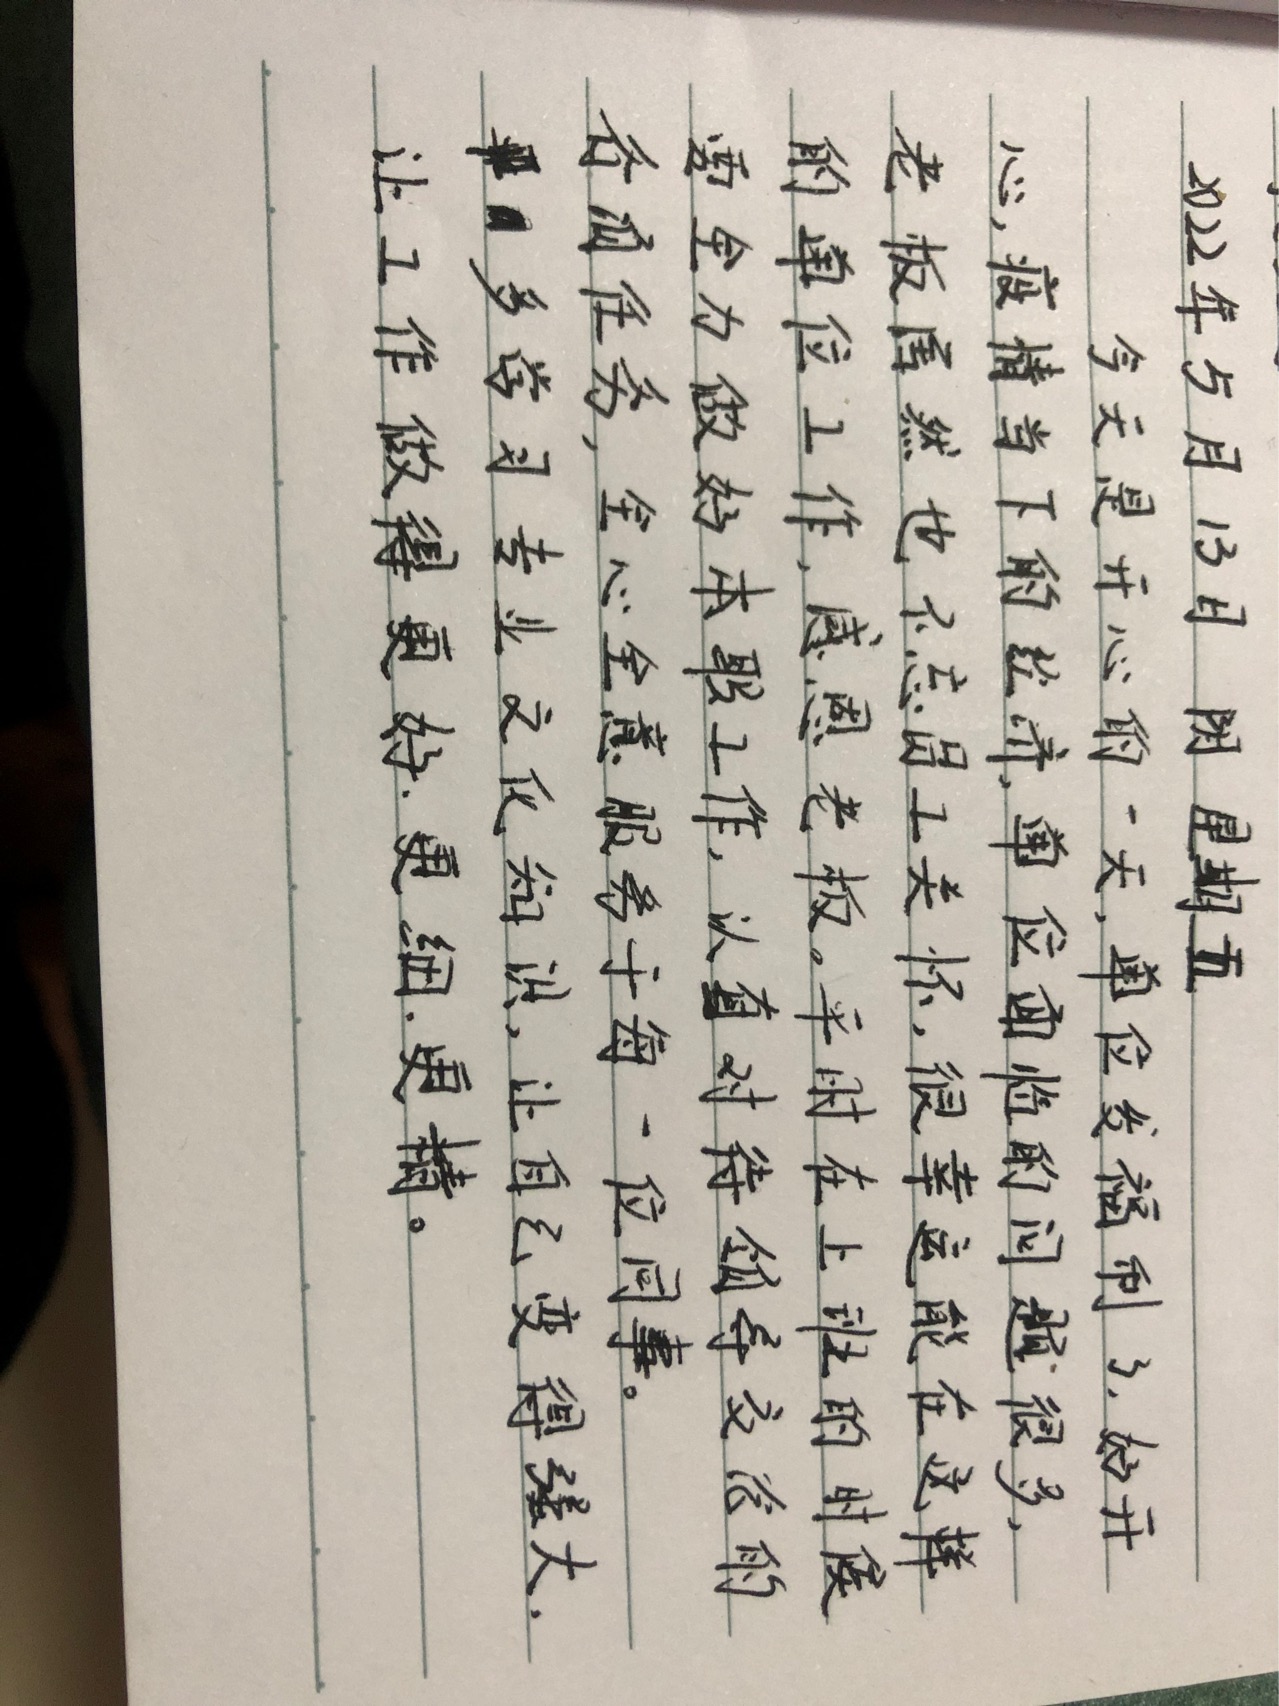 2022年5月13日 阴 星期五
今天是开心的一天,单位发福利了,好开
心,疫情当下的经济,单位面临的问题很多,
老板居然也不忘员工关怀,很幸运能在这样
的单位工作,感恩老板。平时在上班的时候
要全力做好本职工作,以直对待领导交洽的
各酒任务,全心全意服务于每一位同事。
多学习专业文化知识,让自己变得强大,
让工作做得更好.更细.更精。